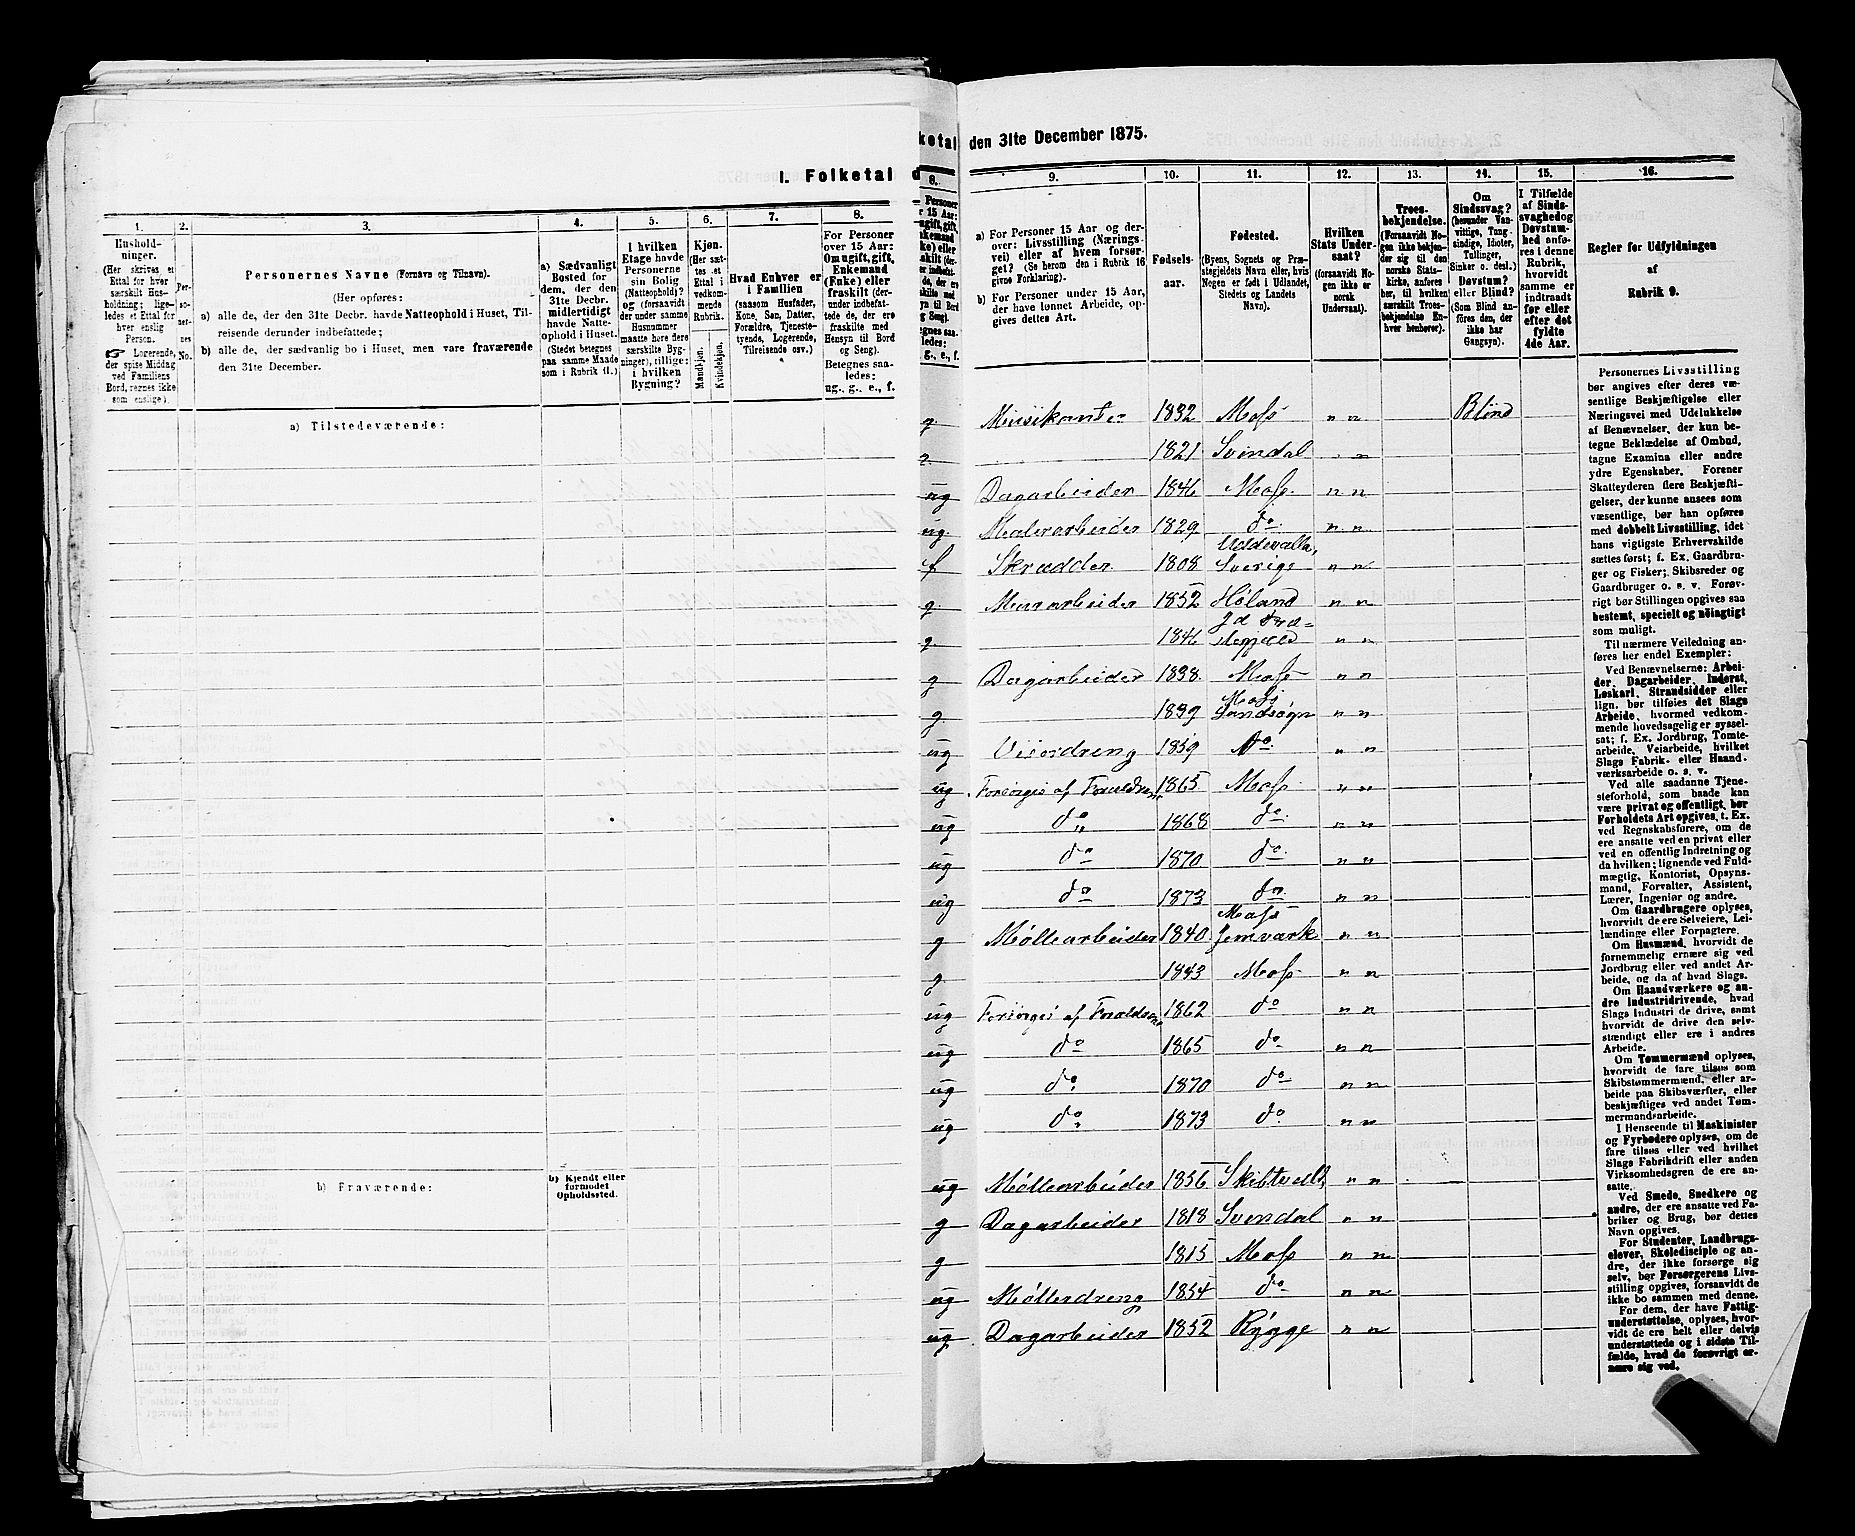 I. Folketal d
1.
2.
3.
4.
5.
6.
7.
8.
Hushold-
ninger.
(Her skrives et
Ettal for hver
særskilt Hus-
holdning; lige-
ledes et Ettal
for hver enslig
Person.
☞ Logerende,
der spise Middag
ved Familiens
Bord, regnes ikke
som enslige).
Per-
so-
ner-
nes
No.
Personernes Navne (Fornavn og Tilnavn).
(Her opføres:
a) alle de, der den 31te Decbr. havde Natteophold i Huset, Til-
reisende derunder indbefattede;
b) alle de, der sædvanlig bo i Huset, men vare fraværende
den 31te December.
a) Sædvanligt
Bosted for
dem, der den
31te Decbr.
midlertidigt
havde Natte-
ophold i Huset.
(Stedet betegnes
paa samme Maade
som i Rubrik 11.)
I hvilken
Etage havde
Personerne
sin Bolig
(Natteophold)?
og (forsaavidt
der under samme
Husnummer
maatte høre flere
særskilte Byg-
ninger), tillige:
i hvilken
Bygning?
Kjøn.
(Her sæt-
tes et
Ettal i
vedkom-
mende
Rubrik.
Mandkjøn.
Kvindekjøn.
Hvad Enhver er
i Familien
(saasom Husfader,
Kone, Søn, Datter,
Forældre, Tjeneste-
tyende, Logerende,
Tilreisende osv.)
For Personer
over 15 Aar:
Om ugift, gift,
Enkemand
(Enke) eller
fraskilt (der-
under indbefat-
tede de, der ere
fraskilte med
Hensyn til Bord
og Seng).
Betegnes saa-
ledes:
ug., g., e., f.
a) Tilstedeværende:
b) Fraværende:
b) Kjendt eller
formodet
Opholdssted.
ketal den 31te December 1875.
8.
9.
10.
11.
12.
13.
14.
15.
16.
a) For Personer 15 Aar og der-
over: Livsstilling (Nærings-
vei) eller af hvem forsør-
get? (Se herom den i Rubrik 16
givne Forklaring).
b) For Personer under 15 Aar,
der have lønnet Arbeide, op-
gives dettes Art.
Fødsels-
aar.
Fødested.
(Byens, Sognets og Præ-
stegjeldets Navn eller, hvis
Nogen er født i Udlandet,
Stedets og Landets
Navn).
Hvilken
Stats Under-
saat?
(forsaavidt No-
gen ikke er
norsk
Undersaat).
Troes-
bekjendelse.
(Forsaavidt No-
gen ikke bekjen-
der sig til den
norske Stats-
kirke, anføres
her, til hvilken
særskilt Troes-
bekjendelse En-
hver henhører).
Om
Sindssvag?
(herunder Van-
vittige, Tung-
sindige, Idioter,
Tullinger,
Sinker o. desl.)
Døvstum?
eller Blind?
(Som Blind an-
føres den, der
ikke har
Gangsyn).
I Tilfælde
af Sinds-
svaghed og
Døvstum-
hed anfø-
res i denne
Rubrik,
hvorvidt
samme er
indtraadt
før eller
efter det
fyldte
4de Aar.
Regler for Udfyldningen
af
Rubrik 9.
g Musikante 1832 Moss " " Blind
g 1821 Svindal " "
ug Dagarbeider 1846 Moss " "
ug Malerarbeider 1829 do " "
f Skrædder 1808 Uddevalla, Sverige " "
g Murarbeider 1852 Høland " "
g 1846 " "
g Dagarbeider 1838 Moss " "
g 1839 Moss Landsogn " "
ug Viserdreng 1859 do " "
ug Forsørges af Forældrene 1865 Moss " "
ug do 1868 do " "
ug do 1870 do " "
ug do 1873 do " "
g Møllearbeider 1840 Moss Jernværk " "
g 1843 Moss " "
ug Forsørges af Forældrene 1862 do " "
ug do 1865 do " "
ug do 1870 do " "
ug do 1873 do " "
ug Møllearbeider 1856 Skibtvedt, " "
g Dagarbeider 1818 Svendal " "
g 1815 Moss " "
ug Møllerdreng 1854 do " "
ug Dagarbeider 1852 Rygge " "
Personernes Livsstilling
bør angives efter deres væ-
sentlige Beskjæftigelse eller
Næringsvei med Udelukkelse
af Benævnelser, der kun be-
tegne Beklædelse af Ombud,
tagne Examina eller andre
ydre Egenskaber. Forener
Skatteyderen flere Beskjæfti-
gelser, der kunne ansees som
væsentlige, bør han opføres
med dobbelt Livsstilling, idet
hans vigtigste Erhvervskilde
sættes først; f. Ex. Gaardbru-
ger og Fisker; Skibsreder og
Gaardbruger o. s. v. Forøv-
rigt bør Stillingen opgives saa
bestemt, specielt og nøiagtigt
som muligt.
Til nærmere Veiledning an-
føres her endel Exempler:
Ved Benævnelserne: Arbei-
der, Dagarbeider, Inderst,
Løskarl, Strandsidder eller
lign. bør tilføies det Slags
Arbeide, hvormed vedkom-
mende hovedsagelig er syssel-
sat; f. Ex. Jordbrug, Tomte-
arbeide, Veiarbeide, hvilket
Slags Fabrik- eller Haand-
værksarbeide o. s. v.
Ved alle saadanne Tjene-
steforhold, som baade kan
være privat og offentligt, bør
Forholdets Art opgives, t. Ex.
ved Regnskabsførere, om de
ere ansatte ved en privat eller
ved en offentlig Indretning og
da hvilken; lignende ved Fuld-
mægtig, Kontorist, Opsyns-
mand, Forvalter, Assistent,
Lærer, Ingeniør og andre.
Om Gaardbrugere oplyses,
hvorvidt de ere Selveiere, Lei-
lændinge eller Forpagtere.
Om Husmænd, hvorvidt de
fornemmelig ernære sig ved
Jordbrug eller ved andet Ar-
beide, og da af hvad Slags.
Om Haandværkere og an-
dre Industridrivende, hvad
Slags Industri de drive, samt
hvorvidt de drive den selv-
stændigt eller ere i andres
Arbeide.
Om Tømmermænd oplyses,
hvorvidt de fare tilsøs som
Skibstømmermænd, eller ar-
beide paa Skibsværfter, eller
beskjæftiges ved andet Tøm-
mermandsarbeide.
I Henseende til Maskinister
og Fyrbødere oplyses, om de
fare tilsøs eller ved hvilket
Slags Fabrikdrift eller anden
Virksomhedsgren de ere an-
satte.
Ved Smede, Snedkere og
andre, der ere ansatte ved Fa-
briker og Brug, bør dettes
Navn opgives.
For Studenter, Landbrugs-
elever, Skoledisciple og an-
dre, der ikke forsørge sig
selv, bør Forsørgerens Livs-
stilling opgives, forsaavidt de
ikke bo sammen med denne.
For dem, der have Fattig-
understøttelse, oplyses, hvor-
vidt de ere helt eller delvis
understøttede og i sidste Til-
fælde, hvad de forøvrigt er-
nære sig ved.